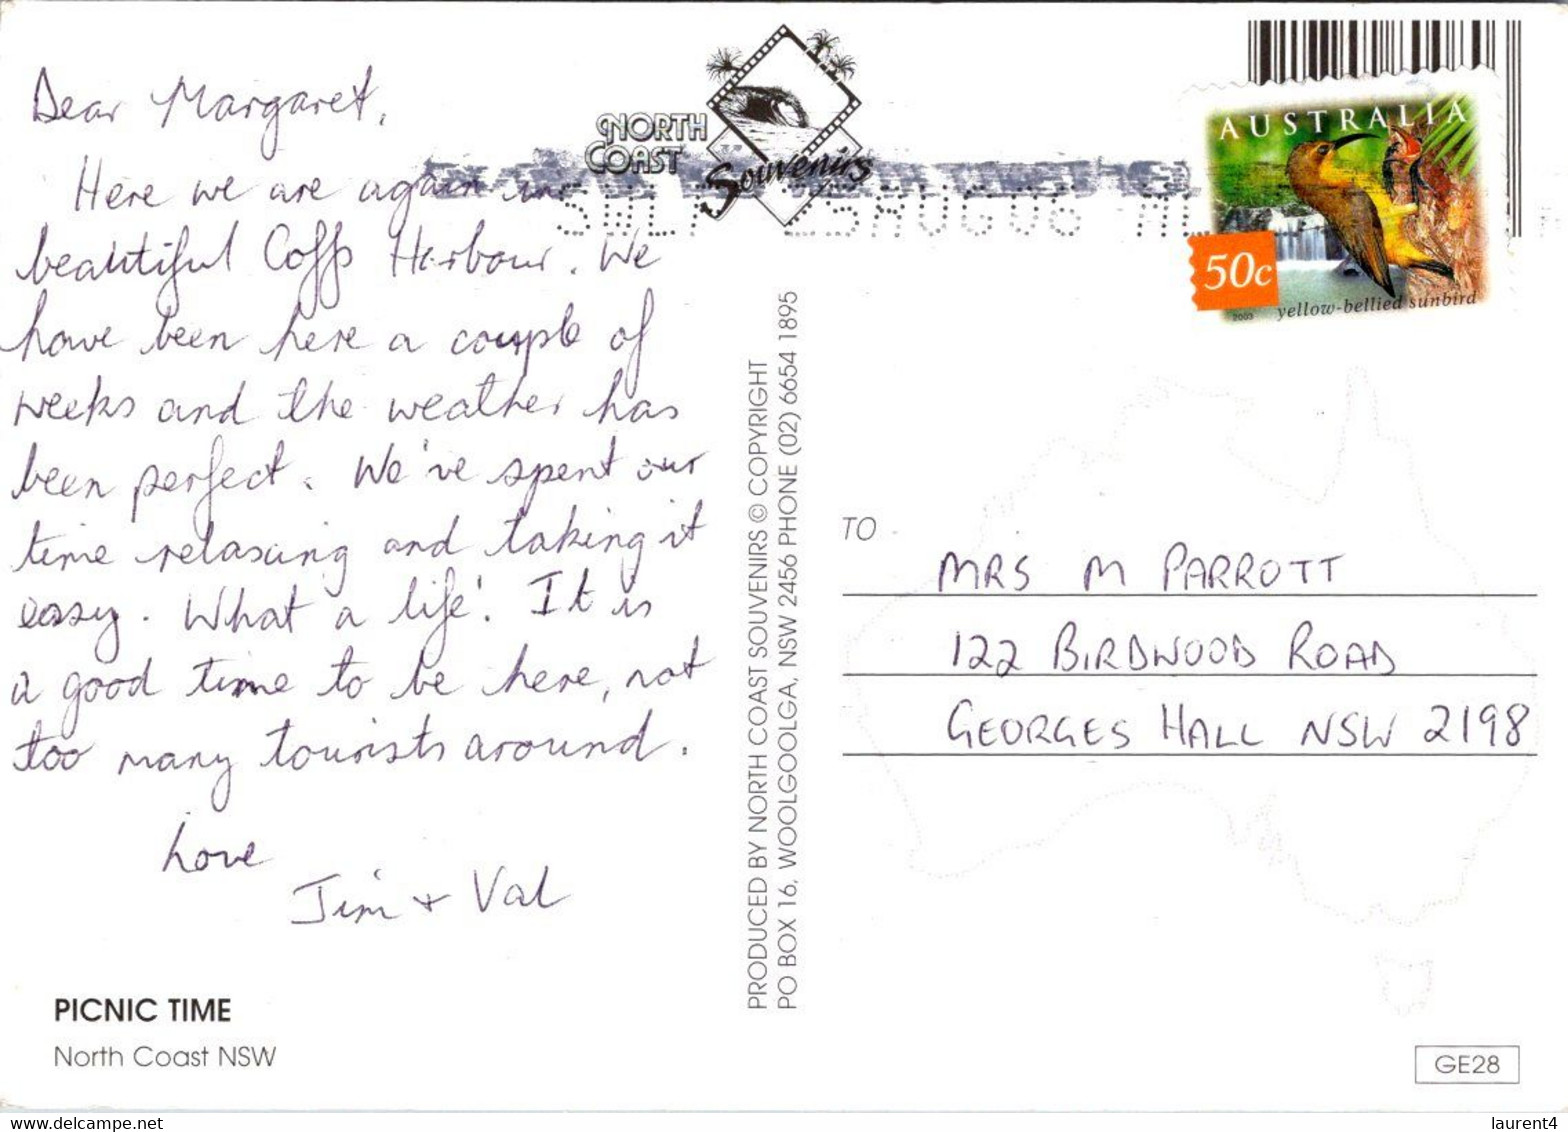 Dear Margaret,
Here we are again in
beautiful Coffs Harbour. We
have been here a couple of
weeks and the weather has
been perfect. We've spent our
time relaxing and taking it
easy. What a life! It is
a good time to be here, not
too many tourists around.
Love
Jim + Val
PICNIC TIME
North Coast NSW
NORTH
COAST
Souvenirs
PRODUCED BY NORTH COAST SOUVENIRS © COPYRIGHT
PO BOX 16, WOOLGOOLGA, NSW 2456 PHONE (02) 6654 1895
25AUG06
AUSTRALIA
50c
2003
yellow-bellied sunbird
TO
MRS M PARROTT
122 BIRDWOOD ROAD
GEORGES HALL NSW 2198
GE28
www.delcampe.net
laurent4